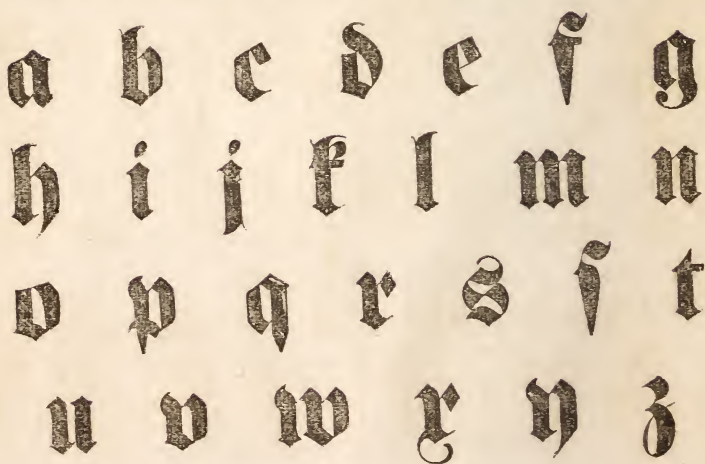 a b c d e f g
h i j k l m n
o p q r s ſ t
u v w x y z